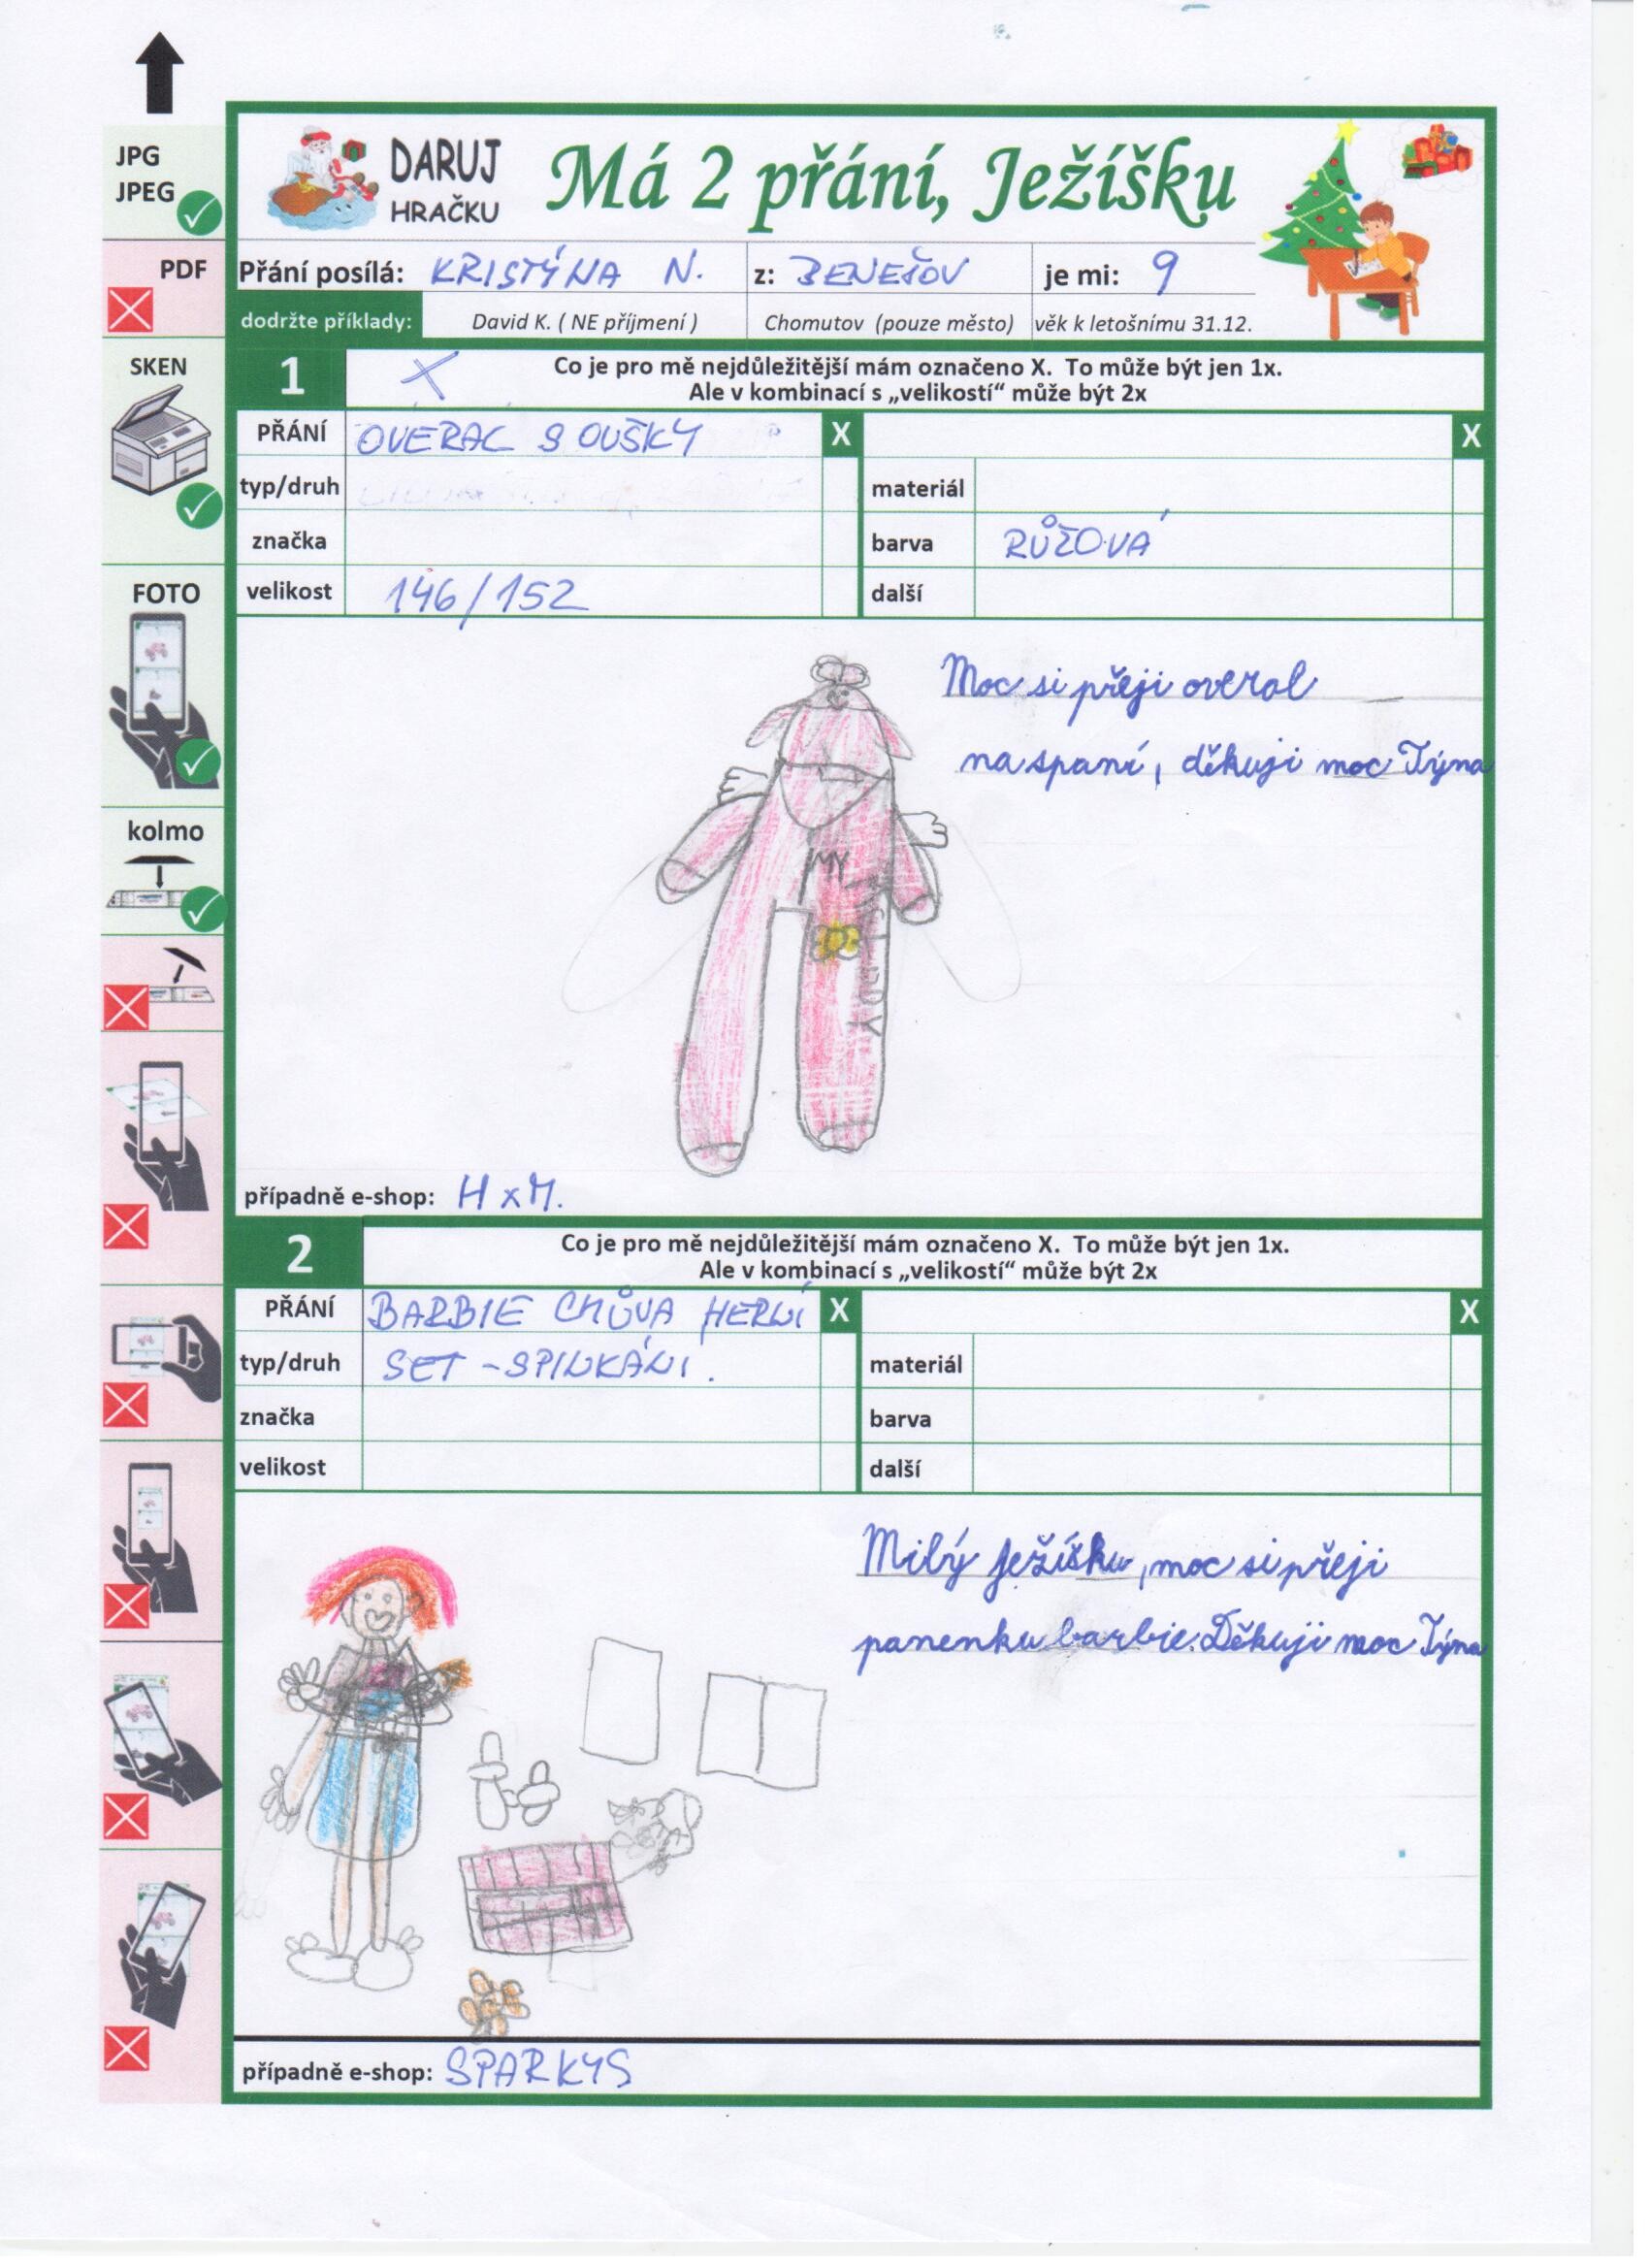 JPG
JPEG
PDF
SKEN
FOTO
kolmo
DARUJ
HRAČKU
Má 2 přání, Ježíšku
Přání posílá: KRISTÝNA N. z: BENEŠOV je mi: 9
dodržte příklady: David K. ( NE příjmení ) Chomutov (pouze město) věk k letošnímu 31.12.
1 X Co je pro mě nejdůležitější mám označeno X. To může být jen 1x.
Ale v kombinací s „velikostí“ může být 2x
PŘÁNÍ OVERAL S OUŠKY X X
typ/druh materiál
značka barva RŮŽOVÁ
velikost 146/152 další
Moc si přeji overal
na spaní, děkuji moc Týna
MY
případně e-shop: H x M.
2 Co je pro mě nejdůležitější mám označeno X. To může být jen 1x.
Ale v kombinací s „velikostí“ může být 2x
PŘÁNÍ BARBIE CHŮVA HERNÍ X X
typ/druh SET - SPINKÁNÍ. materiál
značka barva
velikost další
Milý Ježíšku, moc si přeji
panenku barbie. Děkuji moc Týna
případně e-shop: SPARKYS